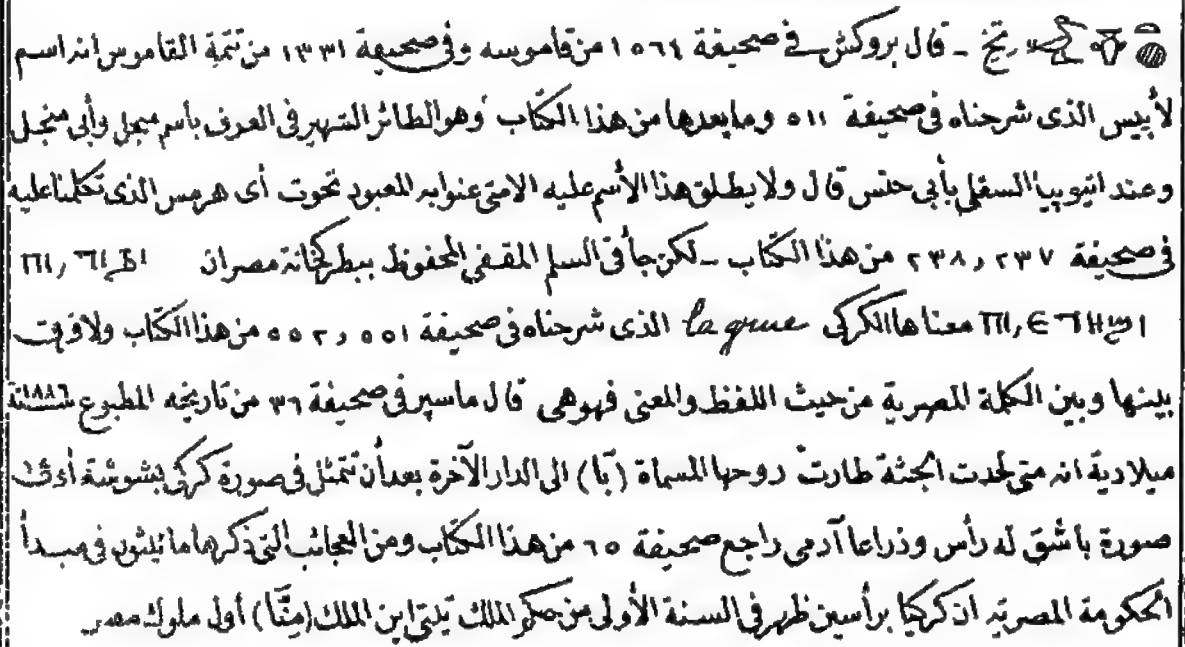 رتخ - قال بروكش فى صحيفة ١٥٦٤ من قاموسه وفى صحيفة ١٣٣١ من تتمة القاموس انه اسم
لأبيس الذى شرحناه فى صحيفة ٥١١ وما بعدها من هذا الكتاب وهو الطائر الشهير فى العرف باسم منجل وأبى منجل
وعند اتيوبيا السفلى بأبى حنس قال ولا يطلق هذا الأسم عليه الا متى عنوا به المعبود تحوت أى هرمس الذى تكلمنا عليه
فى صحيفة ٢٣٧ و ٢٣٨ من هذا الكتاب - لكن جأ فى السلم المقفى المحفوظ ببطركخانة مصر ان
معناها الكركى la grue الذى شرحناه فى صحيفة ٥٥١ و ٥٥٢ من هذا الكتاب ولا فرق
بينها وبين الكلمة المصرية من حيث اللفظ والمعنى فهو هى قال ماسپرو فى صحيفة ٣٦ من تاريخه المطبوع سنة ١٨٨٦
ميلادية انه متى لحدت الجثة طارت روحها المسماة (با) الى الدار الآخرة بعد أن تتمثل فى صورة كركى بشوشة أو فى
صورة باشق له رأس وذراعا آدمى راجع صحيفة ٦٥ من هذا الكتاب ومن العجائب التى ذكرها مانيثون فى مبدأ
الحكومة المصرية ان كركيا برأسين ظهر فى السنة الأولى من حكم الملك تيتى ابن الملك (منّا) أول ملوك مصر